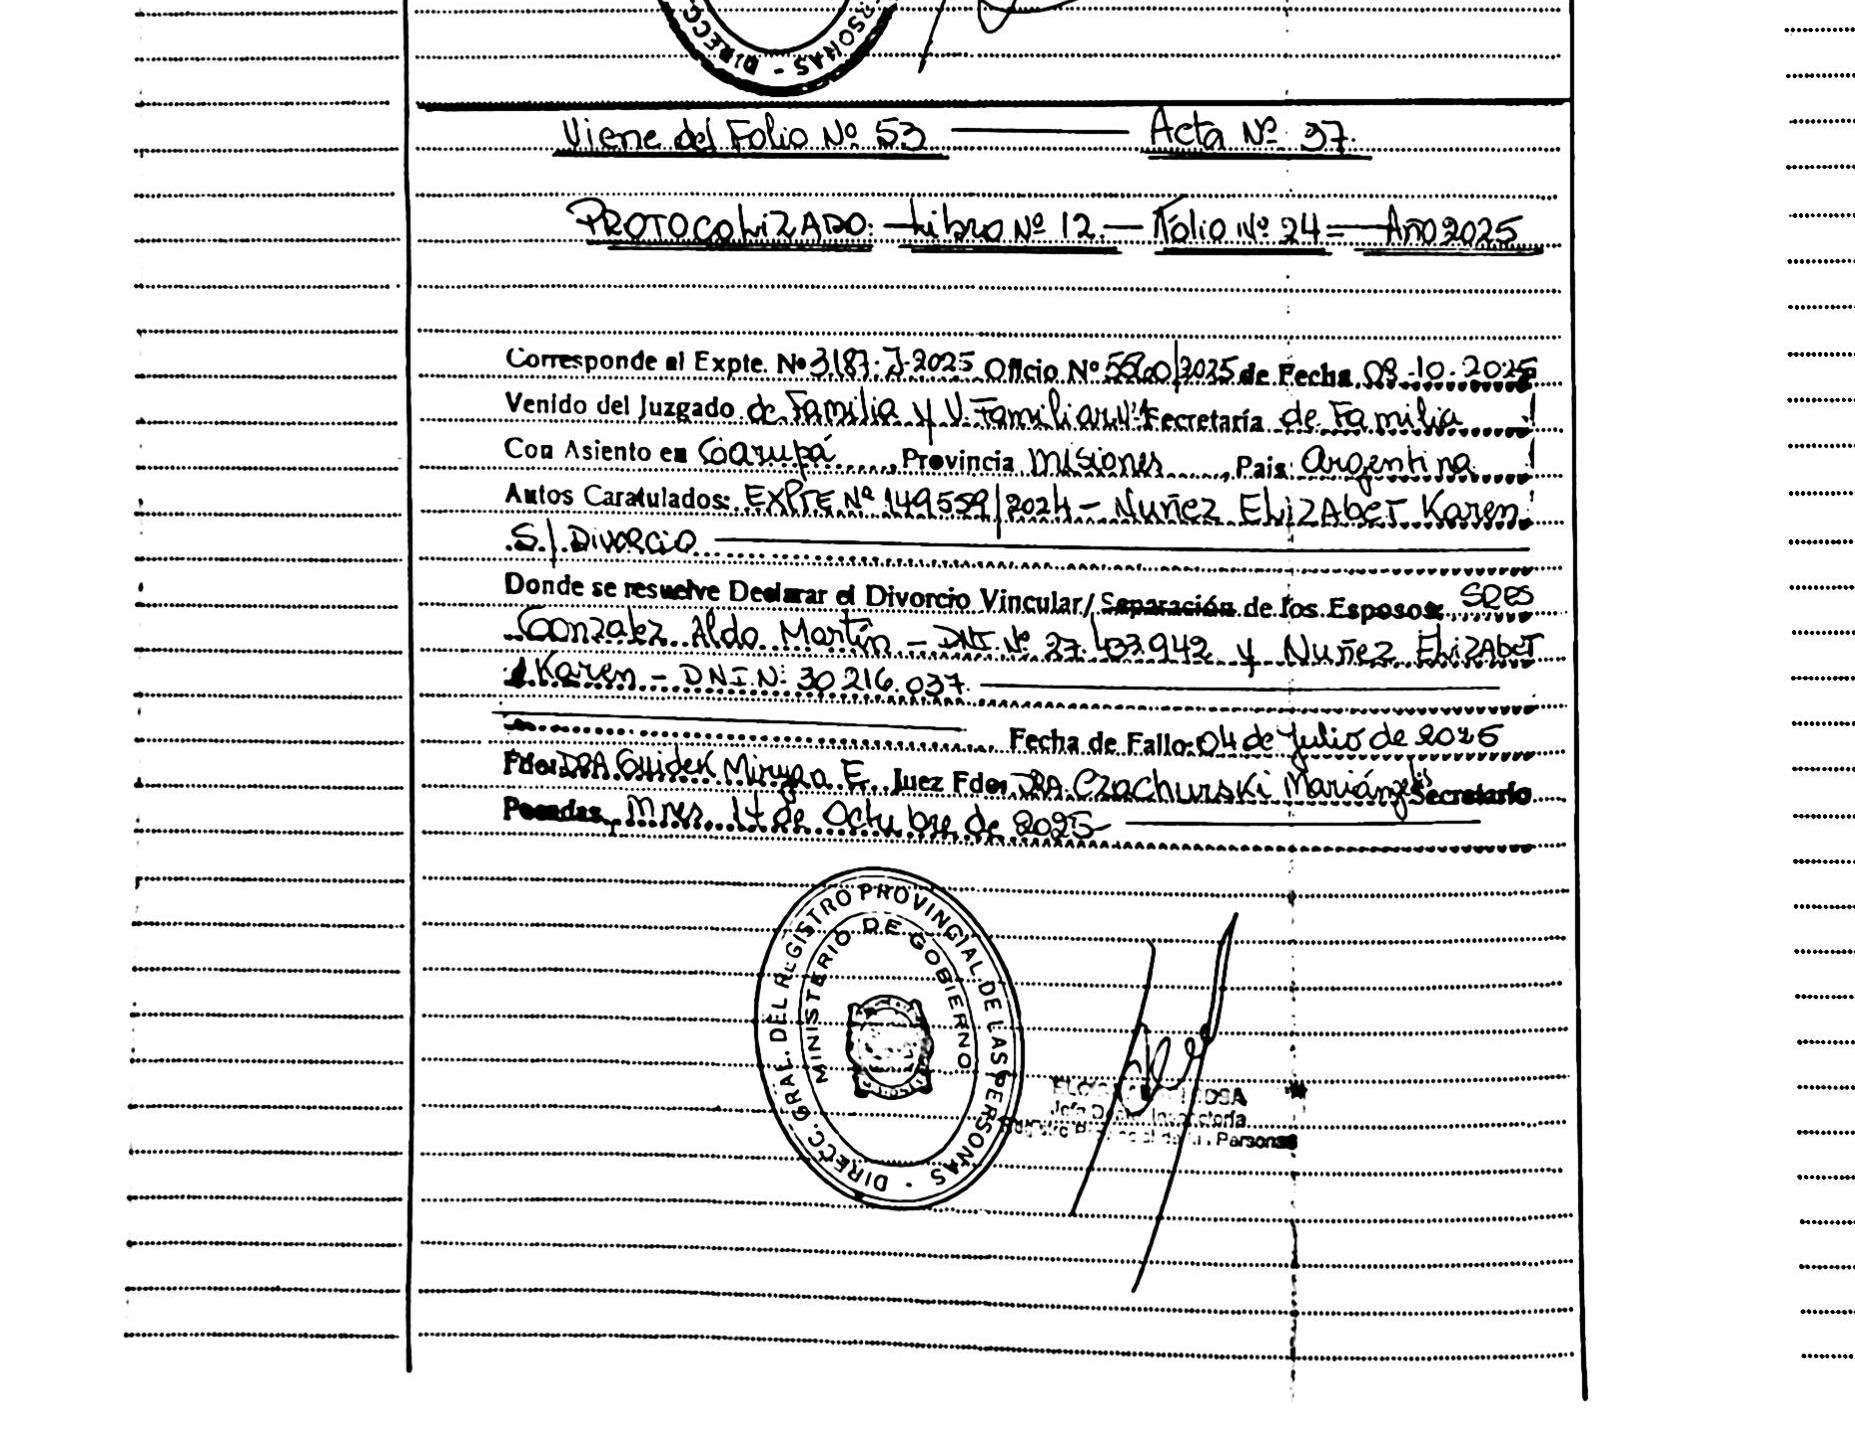 DIRECC. RSONAS -
Viene del Folio Nº 53 — Acta Nº 37.
PROTOCOLIZADO: - Libro Nº 12. - Folio Nº 24 = - Año 2025
Corresponde al Expte. Nº 3187-J-2025 Oficio Nº 5560/2025 de Fecha 08-10-2025
Venido del Juzgado de Familia y V. Familiar Nº1 Secretaría de Familia
Con Asiento en Garupá, Provincia Misiones, Pais: Argentina
Autos Caratulados: EXPTE Nº 149559/2024 - Nuñez Elizabet Karen
S/ Divorcio
Donde se resuelve Declarar el Divorcio Vincular/ Separación de los Esposos: SRES
Gonzalez Aldo Martín - DNI Nº 27.433.942 y Nuñez Elizabet
Karen - DNI.Nº 30216.037.
Fecha de Fallo: 04 de Julio de 2025
Fdo: DRA Guidek Miryan E. Juez Fdo: DRA. Czachurski Mariángelis Secretario
Posadas, Mnes. 17 de Octubre de 2025
DIRECC. GRAL. DEL REGISTRO PROVINCIAL DE LAS PERSONAS
MINISTERIO DE GOBIERNO
Personas